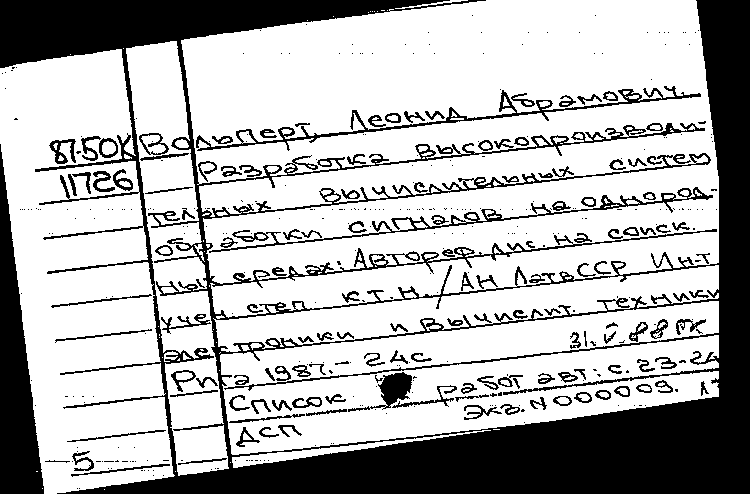 87-50К Вольперт, Леонид Абрамович.
11726 Разработка высокопроизводи-
тельных вычислительных систем
обработки сигналов на однород-
ных средах: Автореф. дис. на соиск.
учен. степ. к.т.н. / АН ЛатвССР, Ин-т
электроники и вычислит. техники
31.V.88 ГК
Рига, 1987. - 24с
Список работ авт: с. 23-24
ДСП Экз. N000009.
5